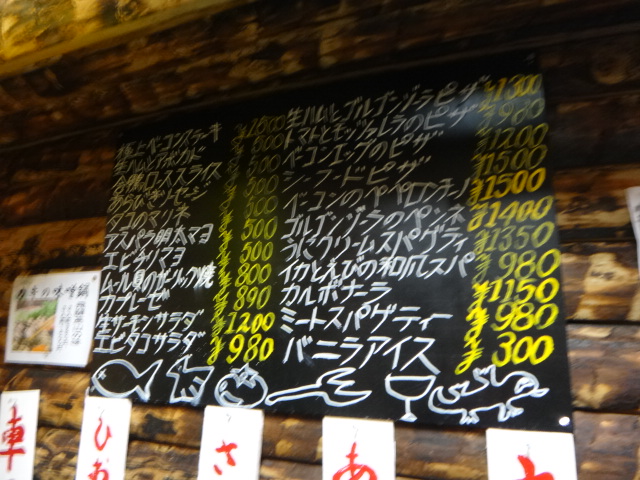 極上ベーコンステーキ
生ハムとアボカド ¥800
合鴨ローススライス ¥500
あらびきソーセージ
タコのマリネ
アスパラ明太マヨ ¥500
マヨ ¥500
ムール貝のガーリック焼 ¥800
カプレーゼ ¥890
生サーモンサラダ ¥1200
エビタコサラダ ¥980
生ハムとゴルゴンゾーラピザ ¥1300
トマトとモッツァレラのピザ ¥980
ベーコンエッグのピザ ¥1200
シーフードピザ ¥1500
ベーコンのペペロンチーノ ¥1500
ゴルゴンゾーラのペンネ ¥1400
うにクリームスパゲティ ¥1350
イカとえびの和風スパ ¥980
カルボナーラ ¥1150
ミートスパゲティー ¥980
バニラアイス ¥300
の味噌鍋
車
ひお
さ
あ